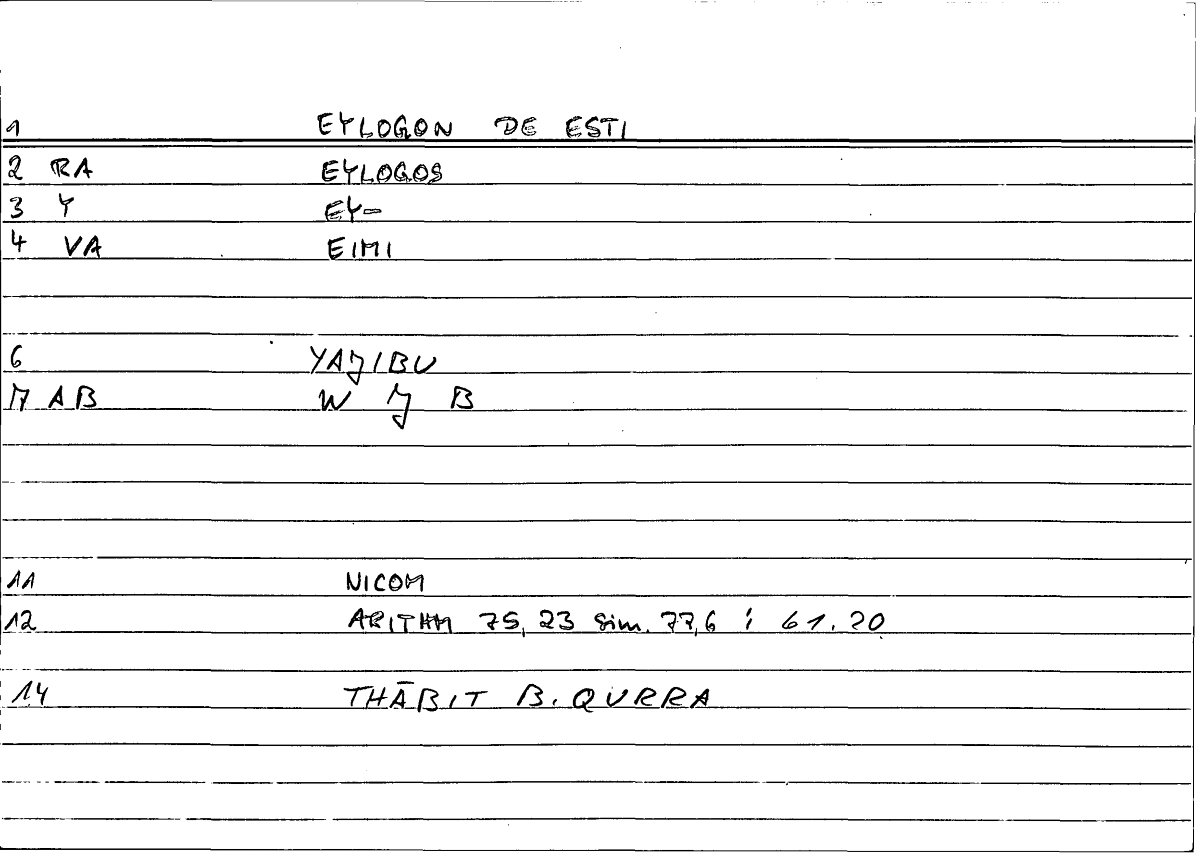 1 EYLOGON DE ESTI
2 RA EYLOGOS
3 Y EY-
4 VA EIMI
6 YAJIBU
7 AB W J B
11 NICOM
12 ARITHM 75,23 sim. 77,6 ; 61.20
14 THĀBIT B. QURRA